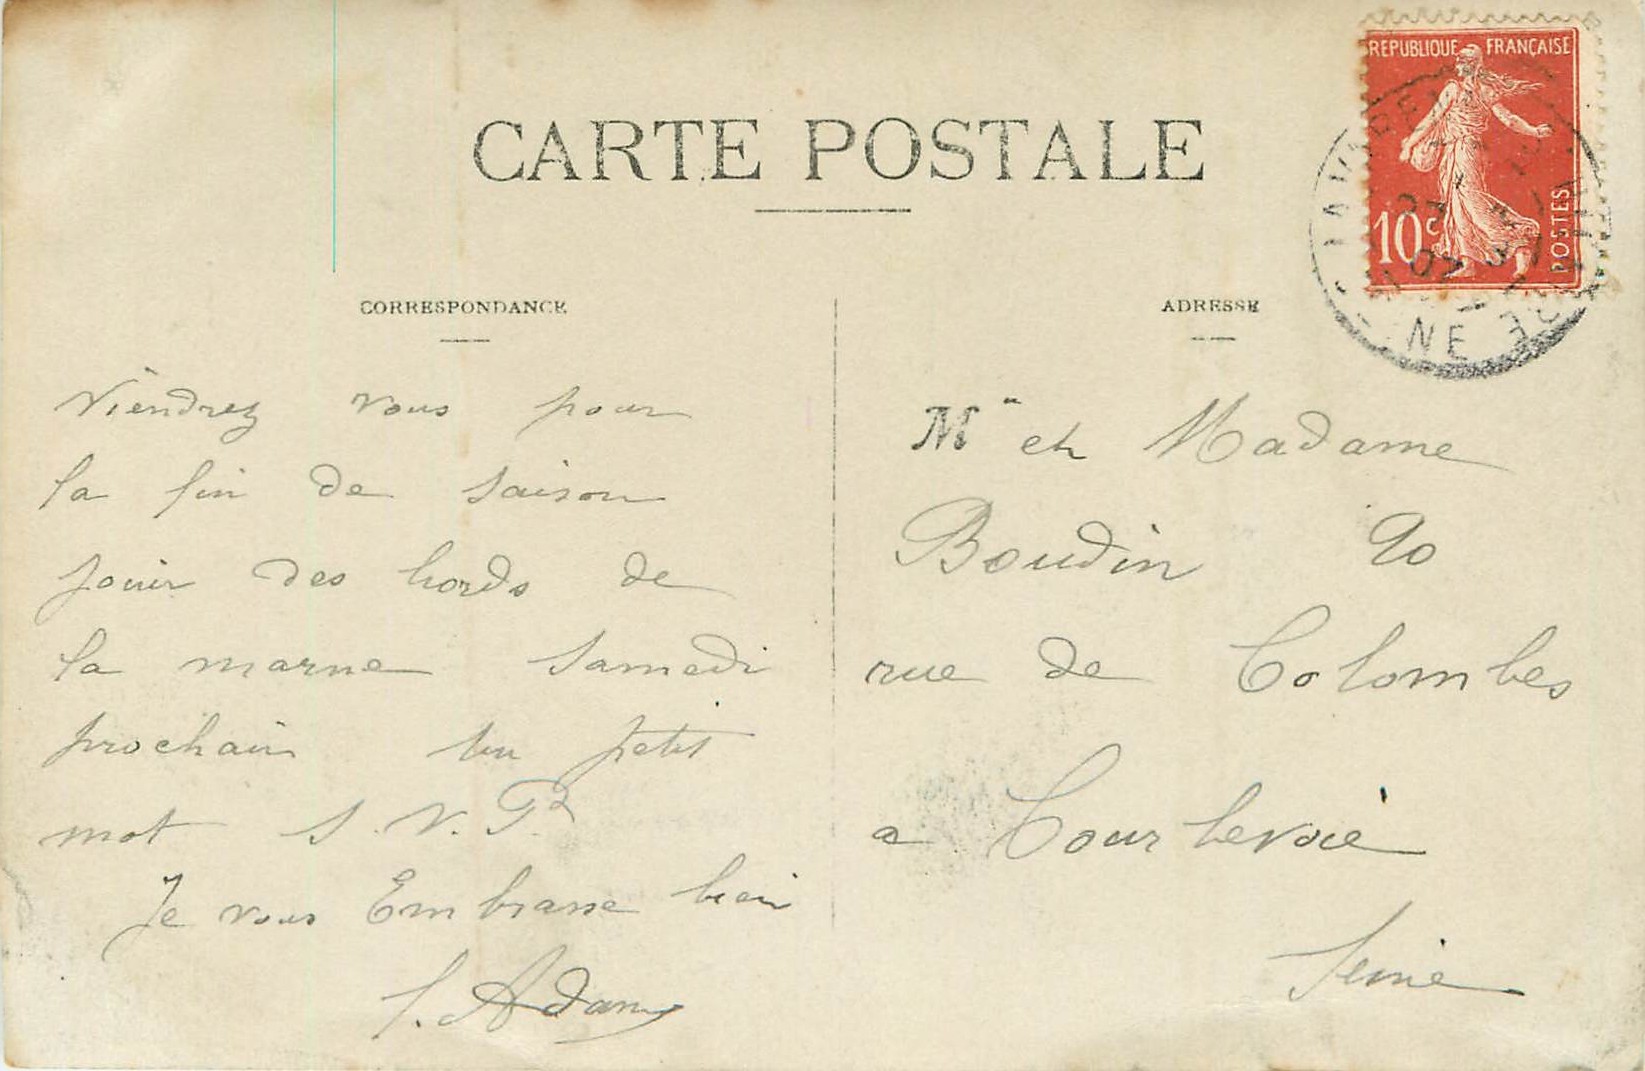 CARTE POSTALE
REPUBLIQUE FRANÇAISE
10c
POSTES
LA VARENNE
NE
CORRESPONDANCE
ADRESSE
Viendrez vous pour
la fin de saison
jouir des bords de
la marne Samedi
prochain un petit
mot S.V.P.
Je vous Embrasse bien
Adam
Mr et Madame
Boudin 20
rue de Colombes
a Courbevoie
Seine